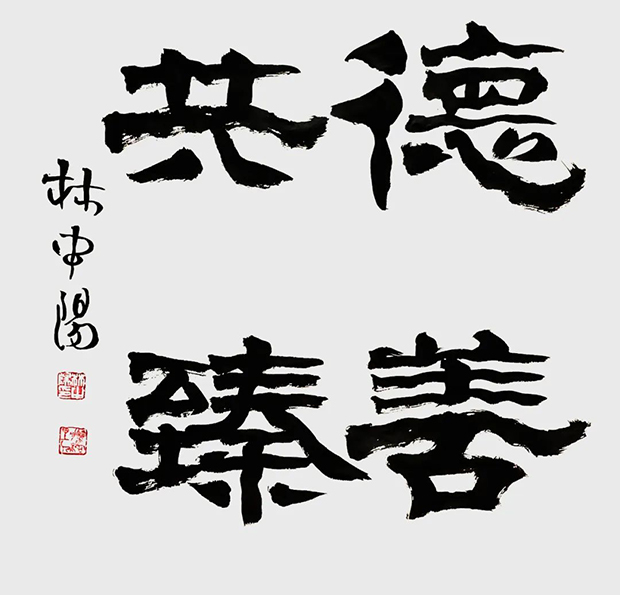 德善
共臻
林中陽